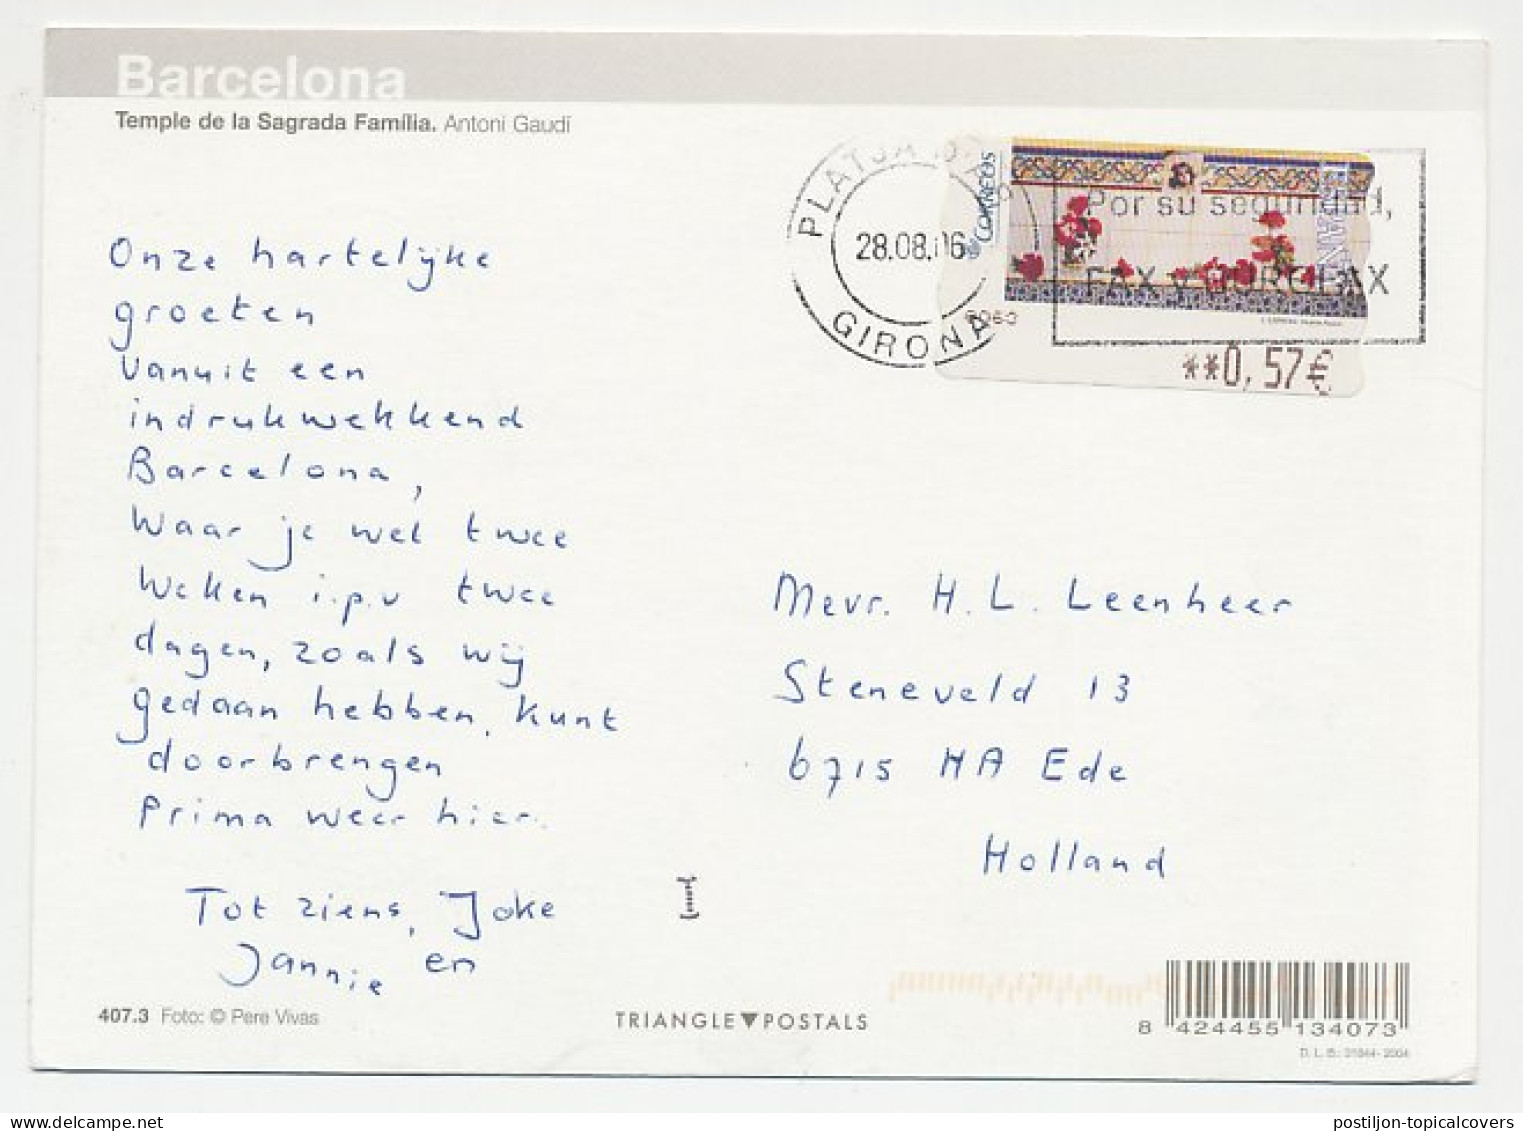 Barcelona
Temple de la Sagrada Família. Antoni Gaudí
Onze hartelijke
groeten
vanuit een
indrukwekkend
Barcelona,
Waar je wel twee
weken i.p.v twee
dagen, zoals wij
gedaan hebben, kunt
doorbrengen
Prima weer hier.
Tot ziens, Joke
en
Jannie
407.3 Foto: © Pere Vivas
TRIANGLE▼POSTALS
PLATJA
28.08.06
GIRONA
CORREOS
Por su seguridad,
FAX
**0,57€
Mevr. H. L. Leenheer
Steneveld 13
6715 HA Ede
Holland
8 424455 134073
D. L. B.: 31844-2004
delcampe.net
postiljon-topicalcovers